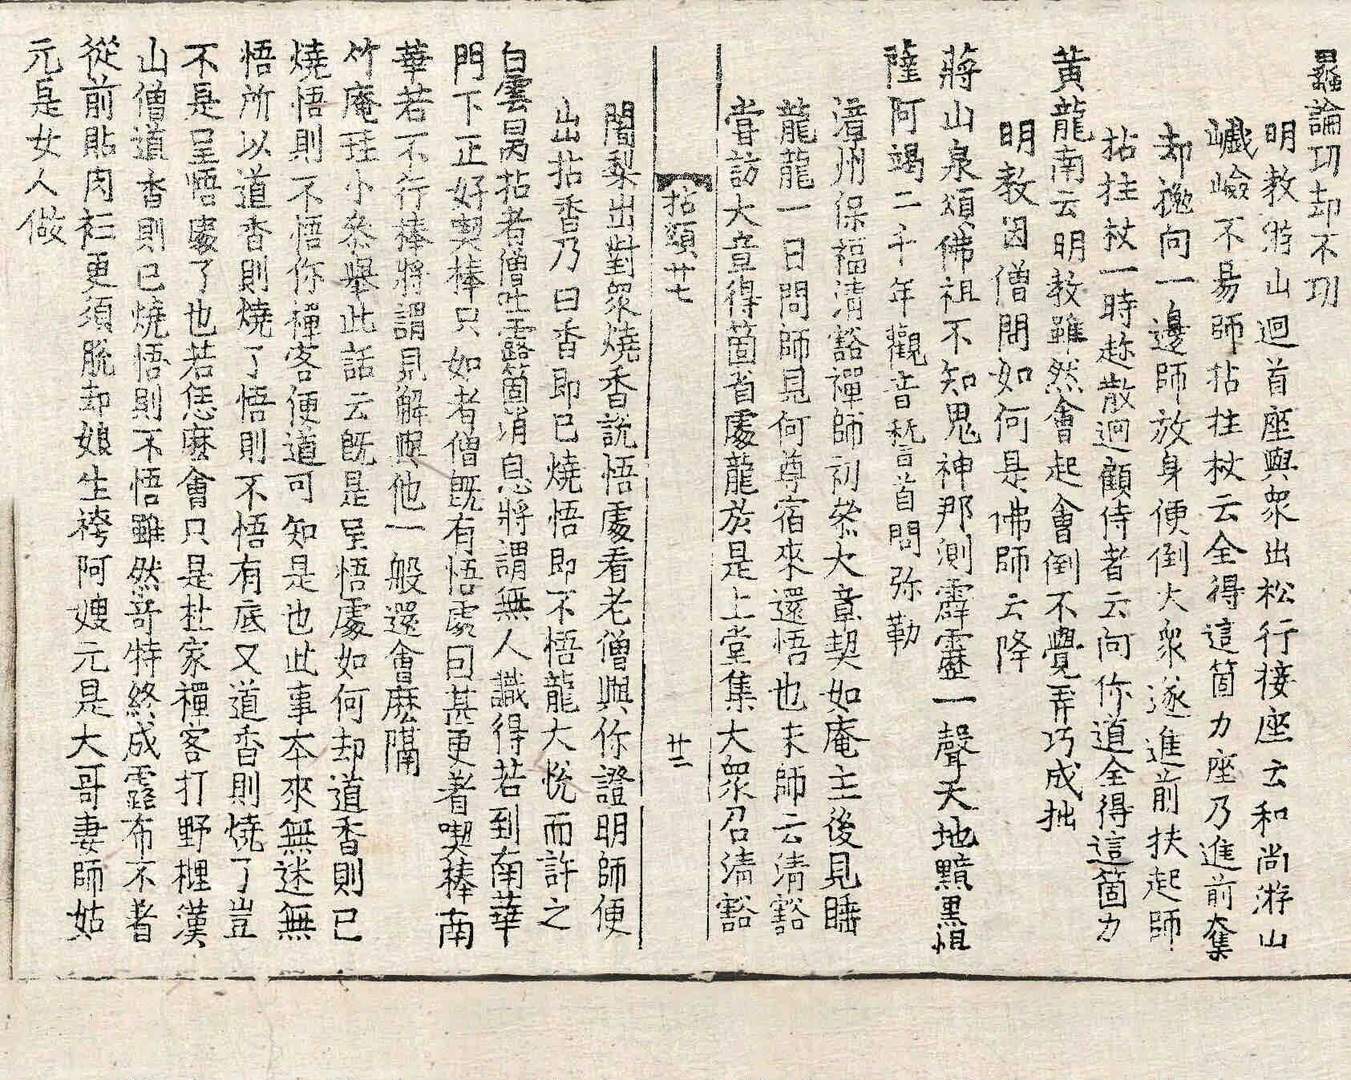 蝨論功却不功
明教游山迴首座與衆出松行接座云和尚游山
巇嶮不昜師拈拄杖云全得這箇力座乃進前奪
却抛向一邊師放身便倒大衆遂進前扶起師
拈拄杖一時趂散迴顧侍者云向你道全得這箇力
黄龍南云明教雖然會起會倒不覺弄巧成拙
明教因僧問如何是佛師云降
蔣山泉頌佛祖不知鬼神那測霹靂一聲天地黯黒怛
薩阿竭二千年觀音稽首問弥勒
漳州保福清豁禪師初叅大章契如庵主後見睡
龍龍一日問師見何尊宿來還悟也未師云清豁
甞訪大章得箇省處龍於是上堂集大衆召清豁
拈頌廿七
廿二
闍梨出對衆燒香説悟處看老僧與你證明師便
出拈香乃曰香即已燒悟即不悟龍大悅而許之
白雲昺拈者僧吐露箇消息將謂無人識得若到南華
門下正好喫棒只如者僧旣有悟處因甚更著喫棒南
華若不行棒將謂見解與他一般還會麽隔
竹庵珪小叅舉此話云旣是呈悟處如何却道香則已
燒悟則不悟你禪客便道可知是也此事本來無迷無
悟所以道香則燒了悟則不悟有底又道香則燒了豈
不是呈悟處了也若恁麽會只是杜家禪客打野榸漢
山僧道香則已燒悟則不悟雖然哥特終成露布不著
從前貼肉衫更須脫却娘生袴阿嫂元是大哥妻師姑
元是女人做